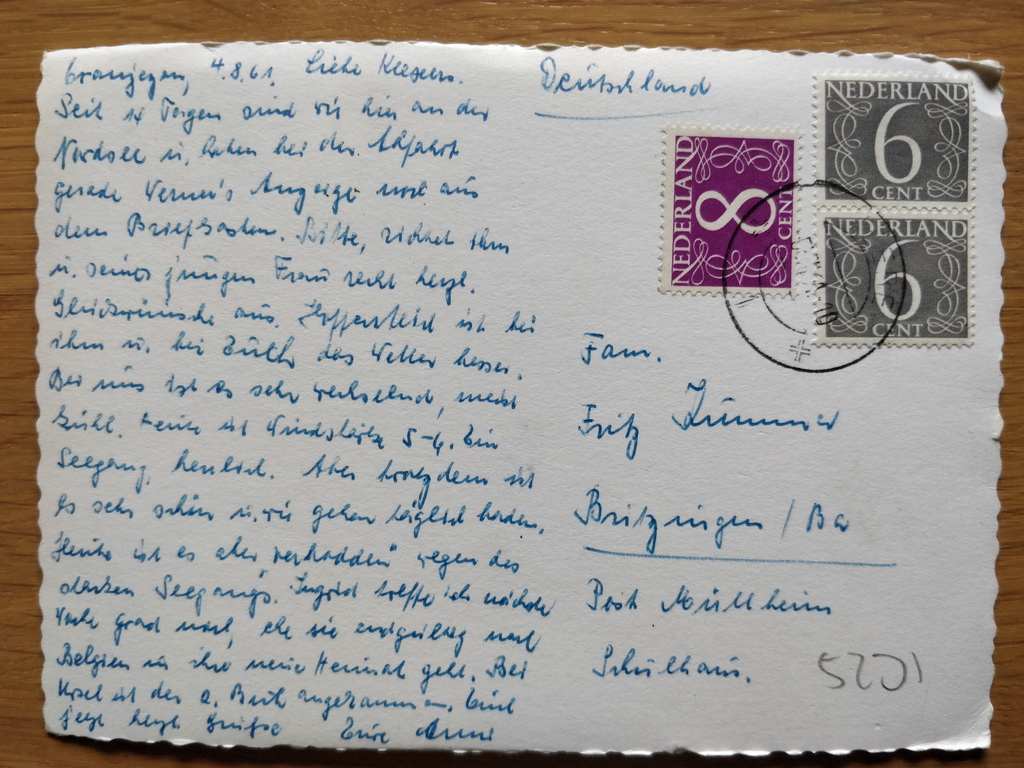 4.8.61. Liebe
Seit 14 Tagen sind wir hier an der
Nordsee u. haben bei der Abfahrt
gerade Werner's Anzeige noch aus
dem Briefkasten. Bitte, richtet ihm
u. seiner jungen Frau recht herzl.
Glückwünsche aus. Hoffentlich ist bei
ihm u. bei Euch das Wetter besser.
Bei uns ist es sehr wechselnd, meist
kühl. Heute ist Windstärke 5-6. Ein
Seegang, herrlich. Aber trotzdem ist
es sehr schön u. wir gehen täglich baden.
Heute ist es aber verboden" wegen des
starken Seegang's. Ingrid treffe ich nächste
Woche grad noch, ehe sie endgültig nach
Belgien in ihre neue Heimat geht. Bei
ist der 2. Bub angekommen. Euch
jetzt herzl. Grüße Eure
Deutschland
NEDERLAND
8
CENT
NEDERLAND
6
CENT
NEDERLAND
6
CENT
Fam.
Fritz
Britzingen / Ba
Post Müllheim
Schulhaus.